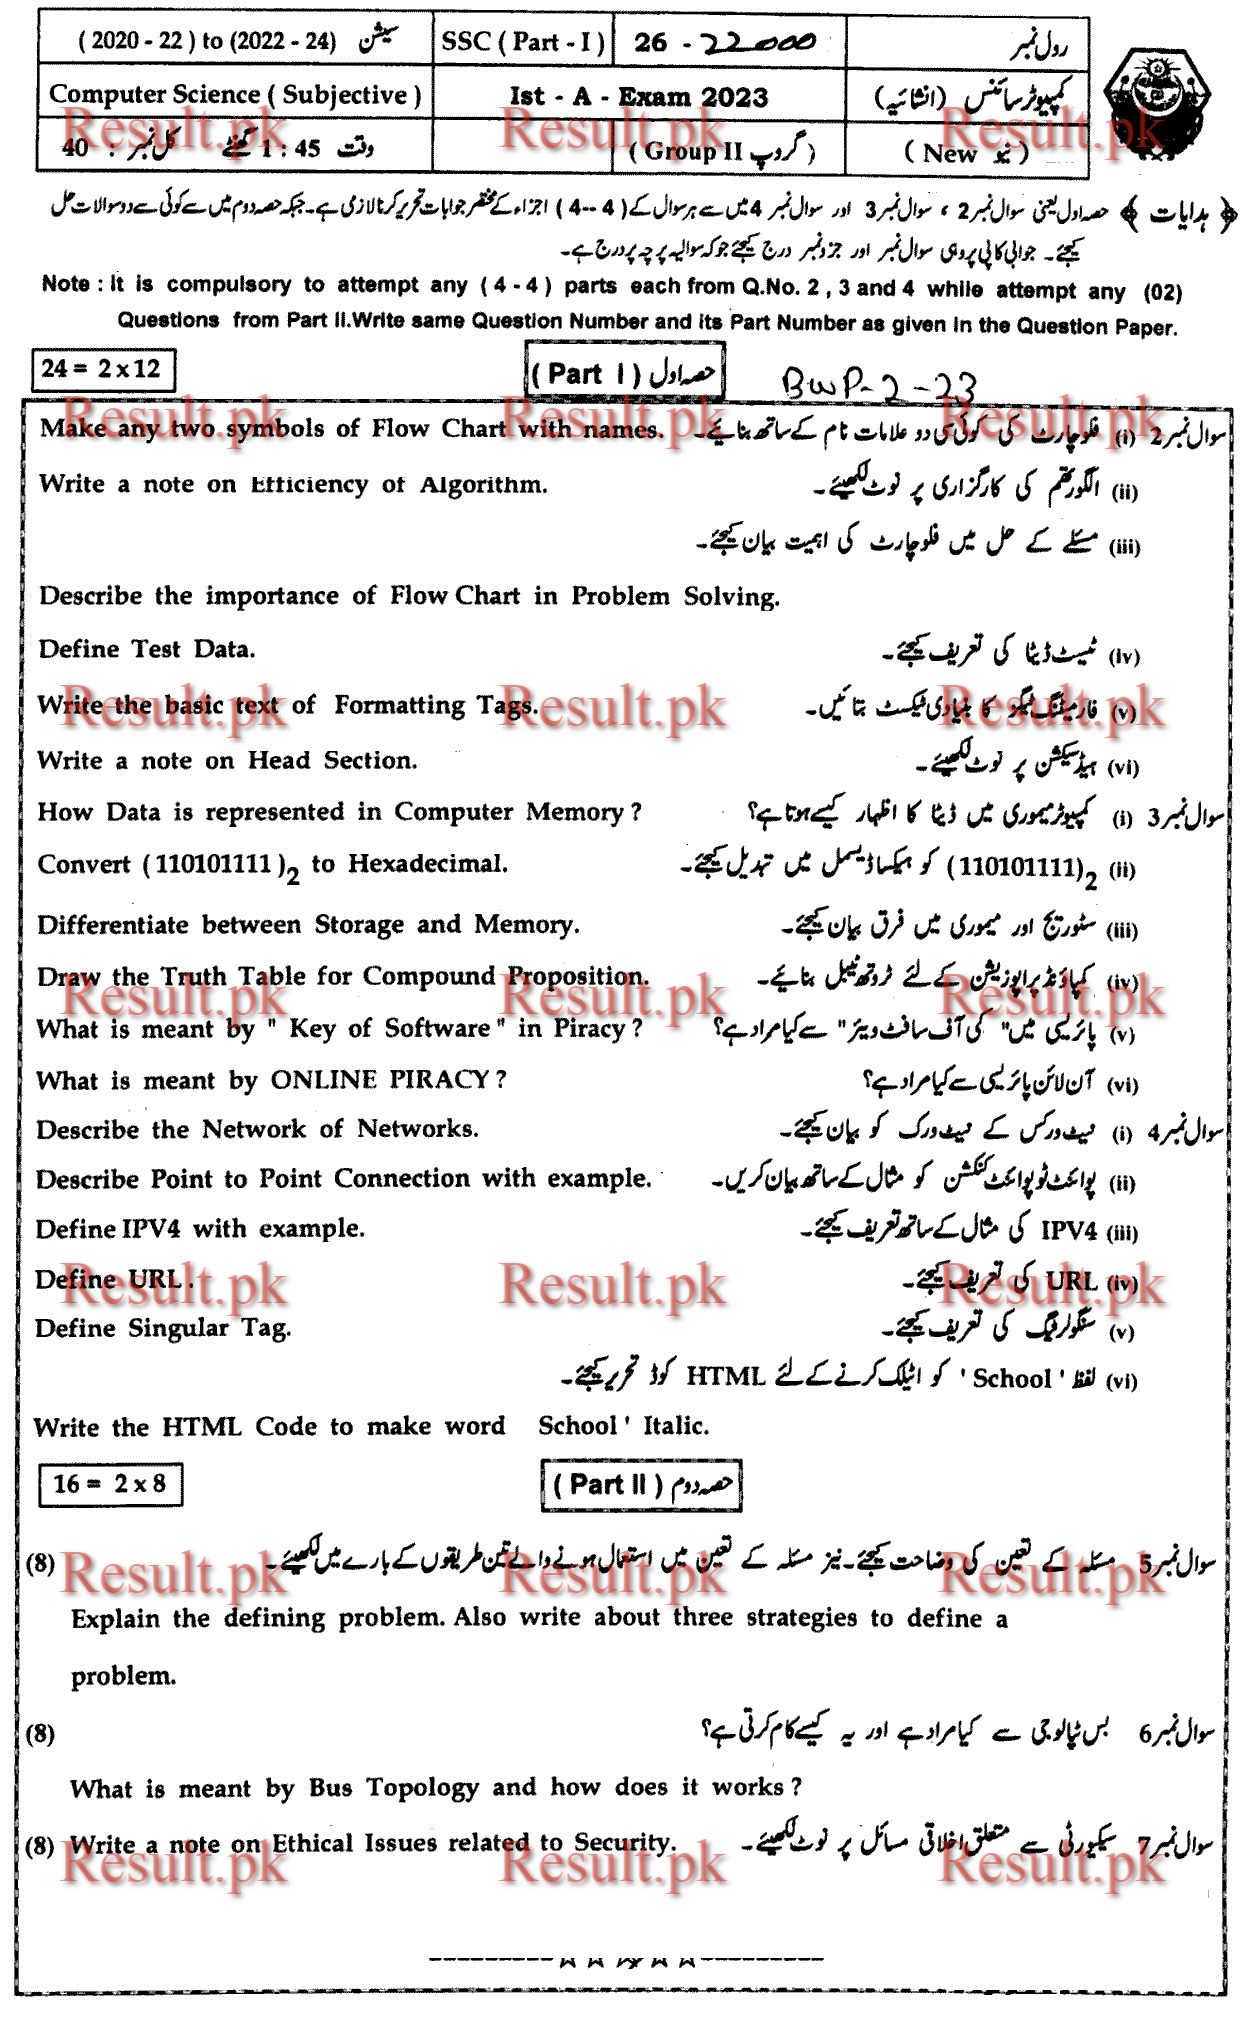 ( 2020 - 22 ) to (2022 - 24) سیشن SSC ( Part - I ) 26 - 22000 رول نمبر
Computer Science ( Subjective ) Ist - A - Exam 2023 کمپیوٹر سائنس (انشائیہ)
وقت 1 : 45 گھنٹے کل نمبر : 40 ( Group II گروپ ) ( New نیو )
﴿ ہدایات ﴾ حصہ اول یعنی سوال نمبر 2 ، سوال نمبر 3 اور سوال نمبر 4 میں سے ہر سوال کے ( 4 -- 4 ) اجزاء کے مختصر جوابات تحریر کرنا لازمی ہے۔ جبکہ حصہ دوم میں سے کوئی سے دو سوالات حل
کیجئے۔ جوابی کاپی پر وہی سوال نمبر اور جزو نمبر درج کیجئے جو کہ سوالیہ پرچہ پر درج ہے۔
Note : It is compulsory to attempt any ( 4 - 4 ) parts each from Q.No. 2 , 3 and 4 while attempt any (02)
Questions from Part II.Write same Question Number and its Part Number as given in the Question Paper.
24 = 2 x 12 ( Part I ) حصہ اول BWP-2-23
Make any two symbols of Flow Chart with names. سوال نمبر 2 (i) فلوچارٹ کی کوئی سی دو علامات نام کے ساتھ بنائیے۔
Write a note on Efficiency of Algorithm. (ii) الگورتھم کی کارگزاری پر نوٹ لکھیئے۔
(iii) مسئلے کے حل میں فلوچارٹ کی اہمیت بیان کیجئے۔
Describe the importance of Flow Chart in Problem Solving.
Define Test Data. (iv) ٹیسٹ ڈیٹا کی تعریف کیجئے۔
Write the basic text of Formatting Tags. (v) فارمیٹنگ ٹیگز کا بنیادی ٹیکسٹ بتائیں۔
Write a note on Head Section. (vi) ہیڈ سیکشن پر نوٹ لکھیئے۔
How Data is represented in Computer Memory ? سوال نمبر 3 (i) کمپیوٹر میموری میں ڈیٹا کا اظہار کیسے ہوتا ہے؟
Convert (110101111)2 to Hexadecimal. (ii) (110101111)2 کو ہیکساڈیسمل میں تبدیل کیجئے۔
Differentiate between Storage and Memory. (iii) سٹوریج اور میموری میں فرق بیان کیجئے۔
Draw the Truth Table for Compound Proposition. (iv) کمپاؤنڈ پراپوزیشن کے لئے ٹروتھ ٹیبل بنائیے۔
What is meant by " Key of Software " in Piracy ? (v) پائریسی میں" کی آف سافٹ ویئر" سے کیا مراد ہے؟
What is meant by ONLINE PIRACY ? (vi) آن لائن پائریسی سے کیا مراد ہے؟
Describe the Network of Networks. سوال نمبر 4 (i) نیٹ ورکس کے نیٹ ورک کو بیان کیجئے۔
Describe Point to Point Connection with example. (ii) پوائنٹ ٹو پوائنٹ کنکشن کو مثال کے ساتھ بیان کریں۔
Define IPV4 with example. (iii) IPV4 کی مثال کے ساتھ تعریف کیجئے۔
Define URL . (iv) URL کی تعریف کیجئے۔
Define Singular Tag. (v) سنگولر ٹیگ کی تعریف کیجئے۔
(vi) لفظ ' School ' کو اٹیلک کرنے کے لئے HTML کوڈ تحریر کیجئے۔
Write the HTML Code to make word School ' Italic.
16 = 2 x 8 ( Part II ) حصہ دوم
(8) سوال نمبر 5 مسئلہ کے تعین کی وضاحت کیجئے۔ نیز مسئلہ کے تعین میں استعمال ہونے والے تین طریقوں کے بارے میں لکھیئے۔
Explain the defining problem. Also write about three strategies to define a
problem.
(8) سوال نمبر 6 بس ٹپالوجی سے کیا مراد ہے اور یہ کیسے کام کرتی ہے؟
What is meant by Bus Topology and how does it works ?
(8) Write a note on Ethical Issues related to Security. سوال نمبر 7 سیکیورٹی سے متعلق اخلاقی مسائل پر نوٹ لکھیئے۔
Result.pk Result.pk Result.pk
Result.pk Result.pk Result.pk
Result.pk Result.pk Result.pk
Result.pk Result.pk Result.pk
Result.pk Result.pk Result.pk
Result.pk Result.pk Result.pk
Result.pk Result.pk Result.pk